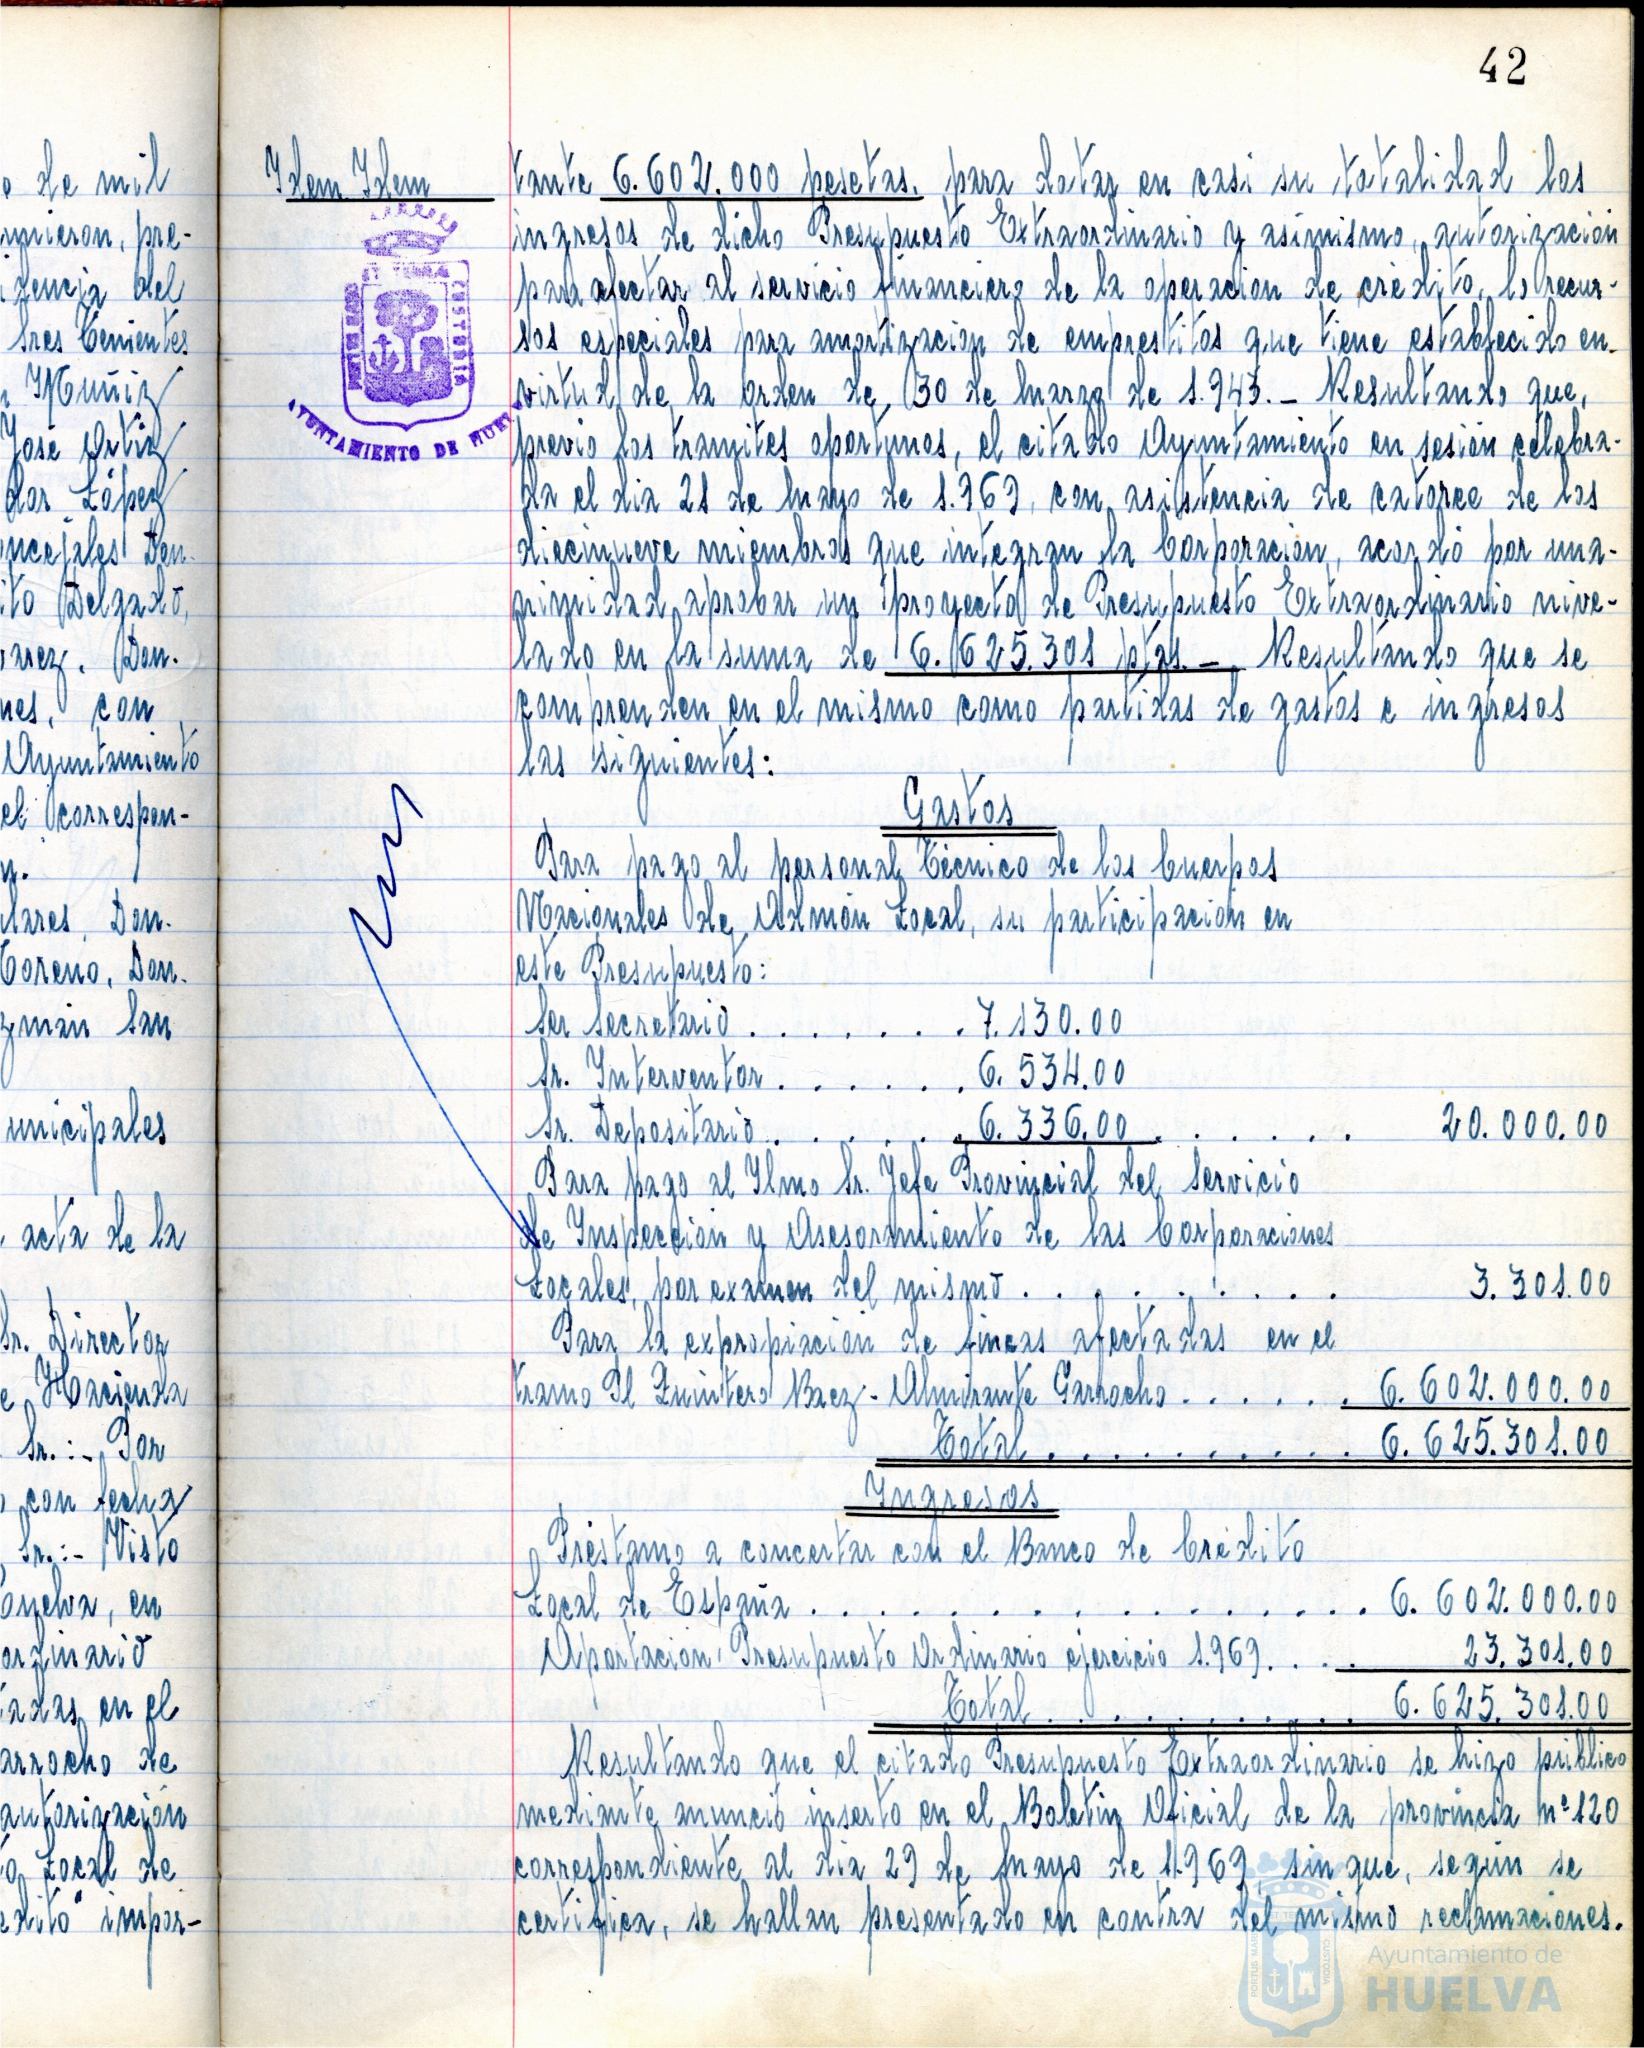 42
e de mil
rmieron, pre-
idencia del
Sres Tenientes
Muñiz
José Ortiz
dor López
ncejales Don.
ito Delgado,
varez. Don.
nes, con
Ayuntamiento
el correspon-
n.
lares, Don.
Toreno, Don.
zmán San
unicipales
acta de la
Sr. Director
e Hacienda
Sr.:- Por
con fecha
Sr.:- Visto
Huelva, en
ordinario
tadas en el
arrocho de
autorización
o Local de
édito" impor-
Idem Idem
PORTUS MARIS
ET TERRÆ
CUSTODIA
AYUNTAMIENTO DE HUELVA
tante 6.602.000 pesetas, para dotar en casi su totalidad los
ingresos de dicho Presupuesto Extraordinario y asimismo, autorización
para afectar al servicio financiero de la operación de crédito, lo recur-
sos especiales para amortización de emprestitos que tiene establecido en
virtud de la orden de 30 de Marzo de 1.943.- Resultando que,
previo los tramites oportunos, el citado Ayuntamiento en sesión celebra-
da el dia 21 de Mayo de 1.969, con asistencia de catorce de los
diecinueve miembros que integran la Corporación, acordó por una-
nimidad aprobar un proyecto de Presupuesto Extraordinario nive-
lado en la suma de 6.625.301 ptas.- Resultando que se
comprenden en el mismo como partidas de gastos e ingresos
las siguientes:
Gastos
Para pago al personal Técnico de los Cuerpos
Nacionales de Admón Local, su participación en
este Presupuesto:
Ser Secretario . . . . . . . 7.130.00
Sr. Interventor . . . . . . 6.534.00
Sr. Depositario . . . . . . 6.336.00 . . . . . . 20.000.00
Para pago al Ilmo Sr. Jefe Provincial del Servicio
de Inspección y Asesoramiento de las Corporaciones
Locales, por examen del mismo . . . . . . . . . 3.301.00
Para la expropiación de fincas afectadas en el
tramo Pl Quintero Baez - Almirante Garrocho . . . . . . 6.602.000.00
Total . . . . . . . . . . 6.625.301.00
Ingresos
Préstamo a concertar con el Banco de Crédito
Local de España . . . . . . . . . . . . . . . . 6.602.000.00
Aportación Presupuesto Ordinario ejercicio 1.969. . . . 23.301.00
Total . . . . . . . . . . 6.625.301.00
Resultando que el citado Presupuesto Extraordinario se hizo público
mediante anuncio inserto en el Boletín Oficial de la provincia nº 120
correspondiente al dia 29 de Mayo de 1.969 sin que, según se
certifica, se hallan presentado en contra del mismo reclamaciones.
Ayuntamiento de
HUELVA